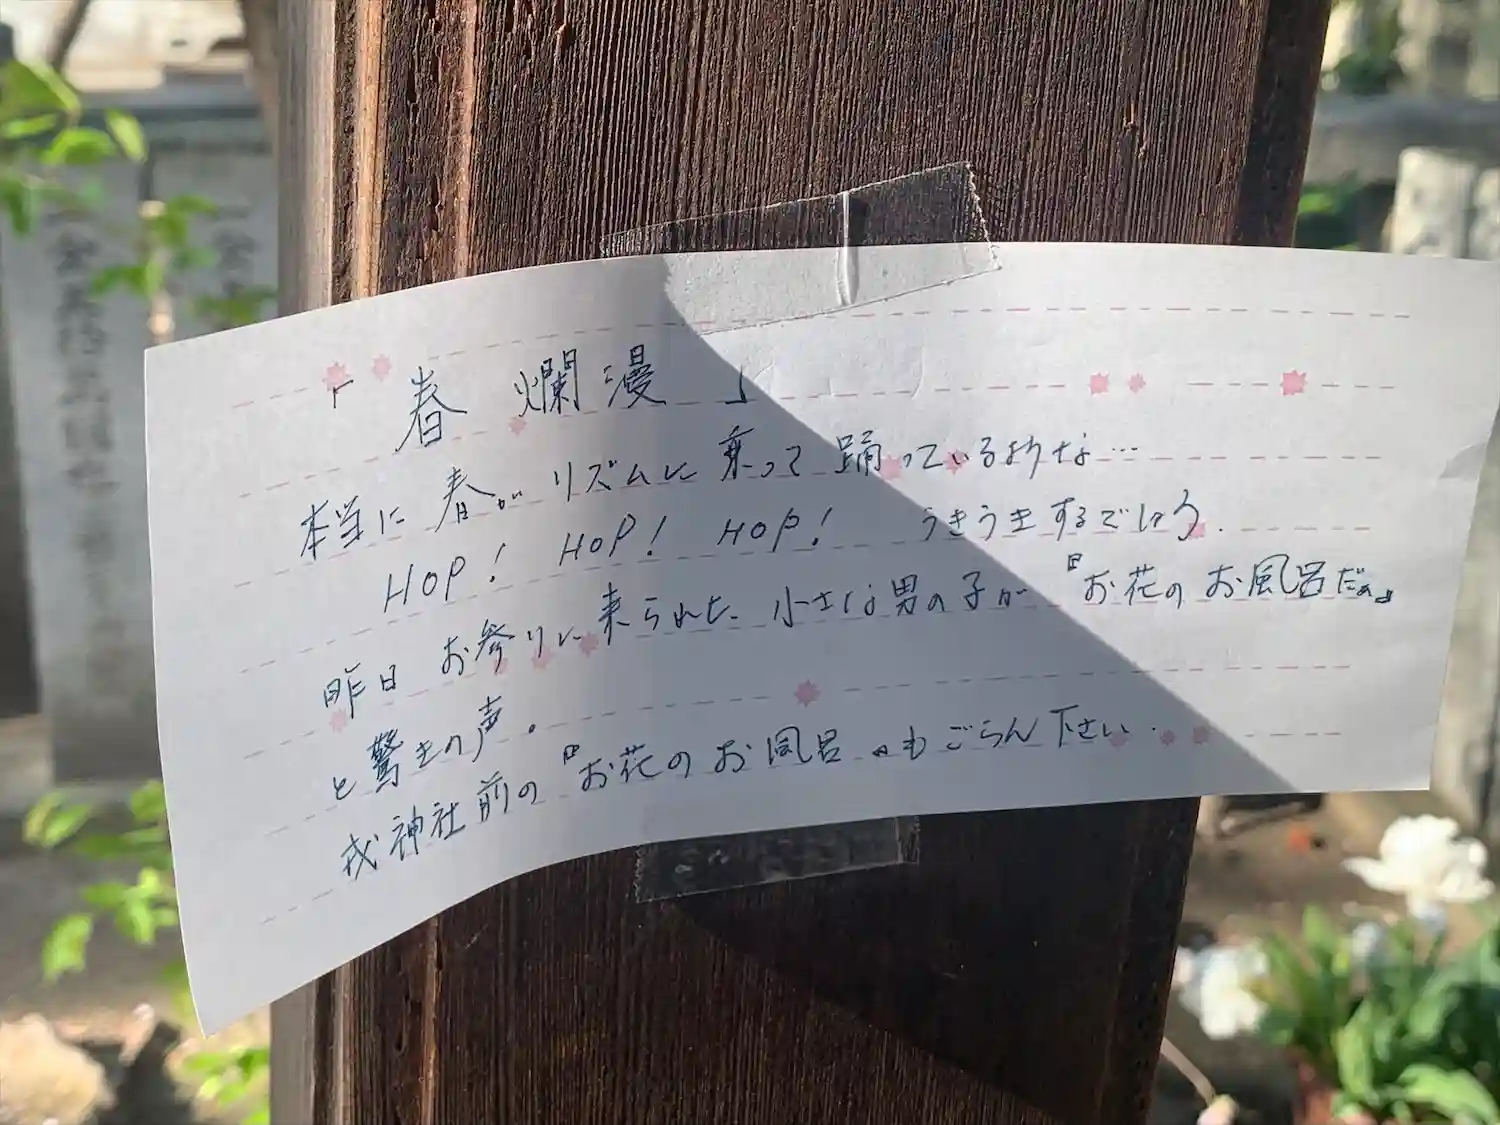 「春爛漫」
本当に春がリズムに乗って踊っているような…
HOP! HOP! HOP! うきうきするでしょう.
昨日お参りに来られた小さな男の子が『お花のお風呂だぁ』
と驚きの声。
戎神社前の『お花のお風呂』もごらん下さい.